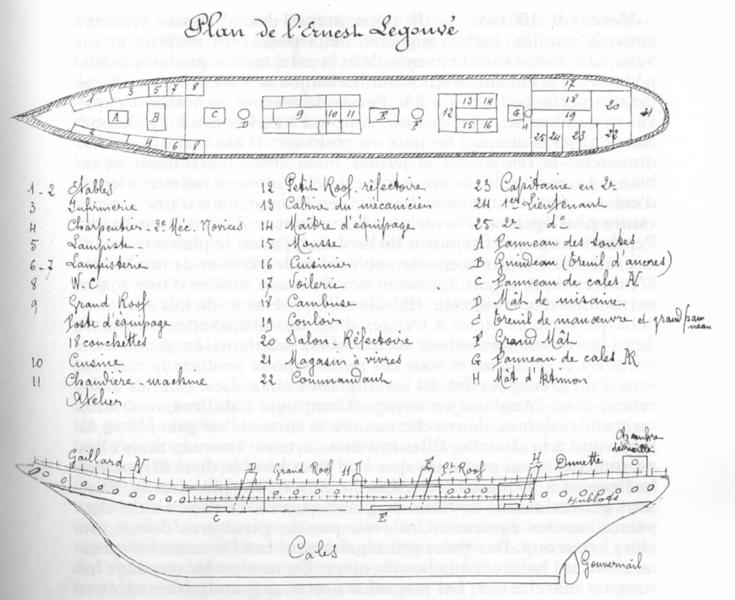 Plan de l'Ernest Legouvé
1 3 5 7 8
A B C D 9 10 11 E F 12 13 14 15 16 G H 17 18 19 20 21
2 4 6 7 8
25 24 23 22
1-2 Etables
3 Infirmerie
4 Charpentier-2e Méc. Novices
5 Lampiste
6-7 Lampisterie
8 W.C
9 Grand Roof
Poste d'équipage
18 couchettes
10 Cuisine
11 Chaudière-machine
Atelier
12 Petit Roof, réfectoire
13 Cabine du mécanicien
14 Maître d'équipage
15 Mousse
16 Cuisinier
17 Voilerie
18 Cambuse
19 Couloir
20 Salon-Réfectoire
21 Magasin à vivres
22 Commandant
23 Capitaine en 2e
24 1er Lieutenant
25 2e do
A Panneau des soutes
B Guindeau (treuil d'ancres)
C Panneau de cales AV
D Mât de misaine
E Treuil de manœuvre et grand panneau
F Grand Mât
G Panneau de cales AR
H Mât d'Artimon
Chambre de veille
Gaillard AV D Grand Roof F Pt Roof H Dunette
Hublots
C E
Cales
Gouvernail